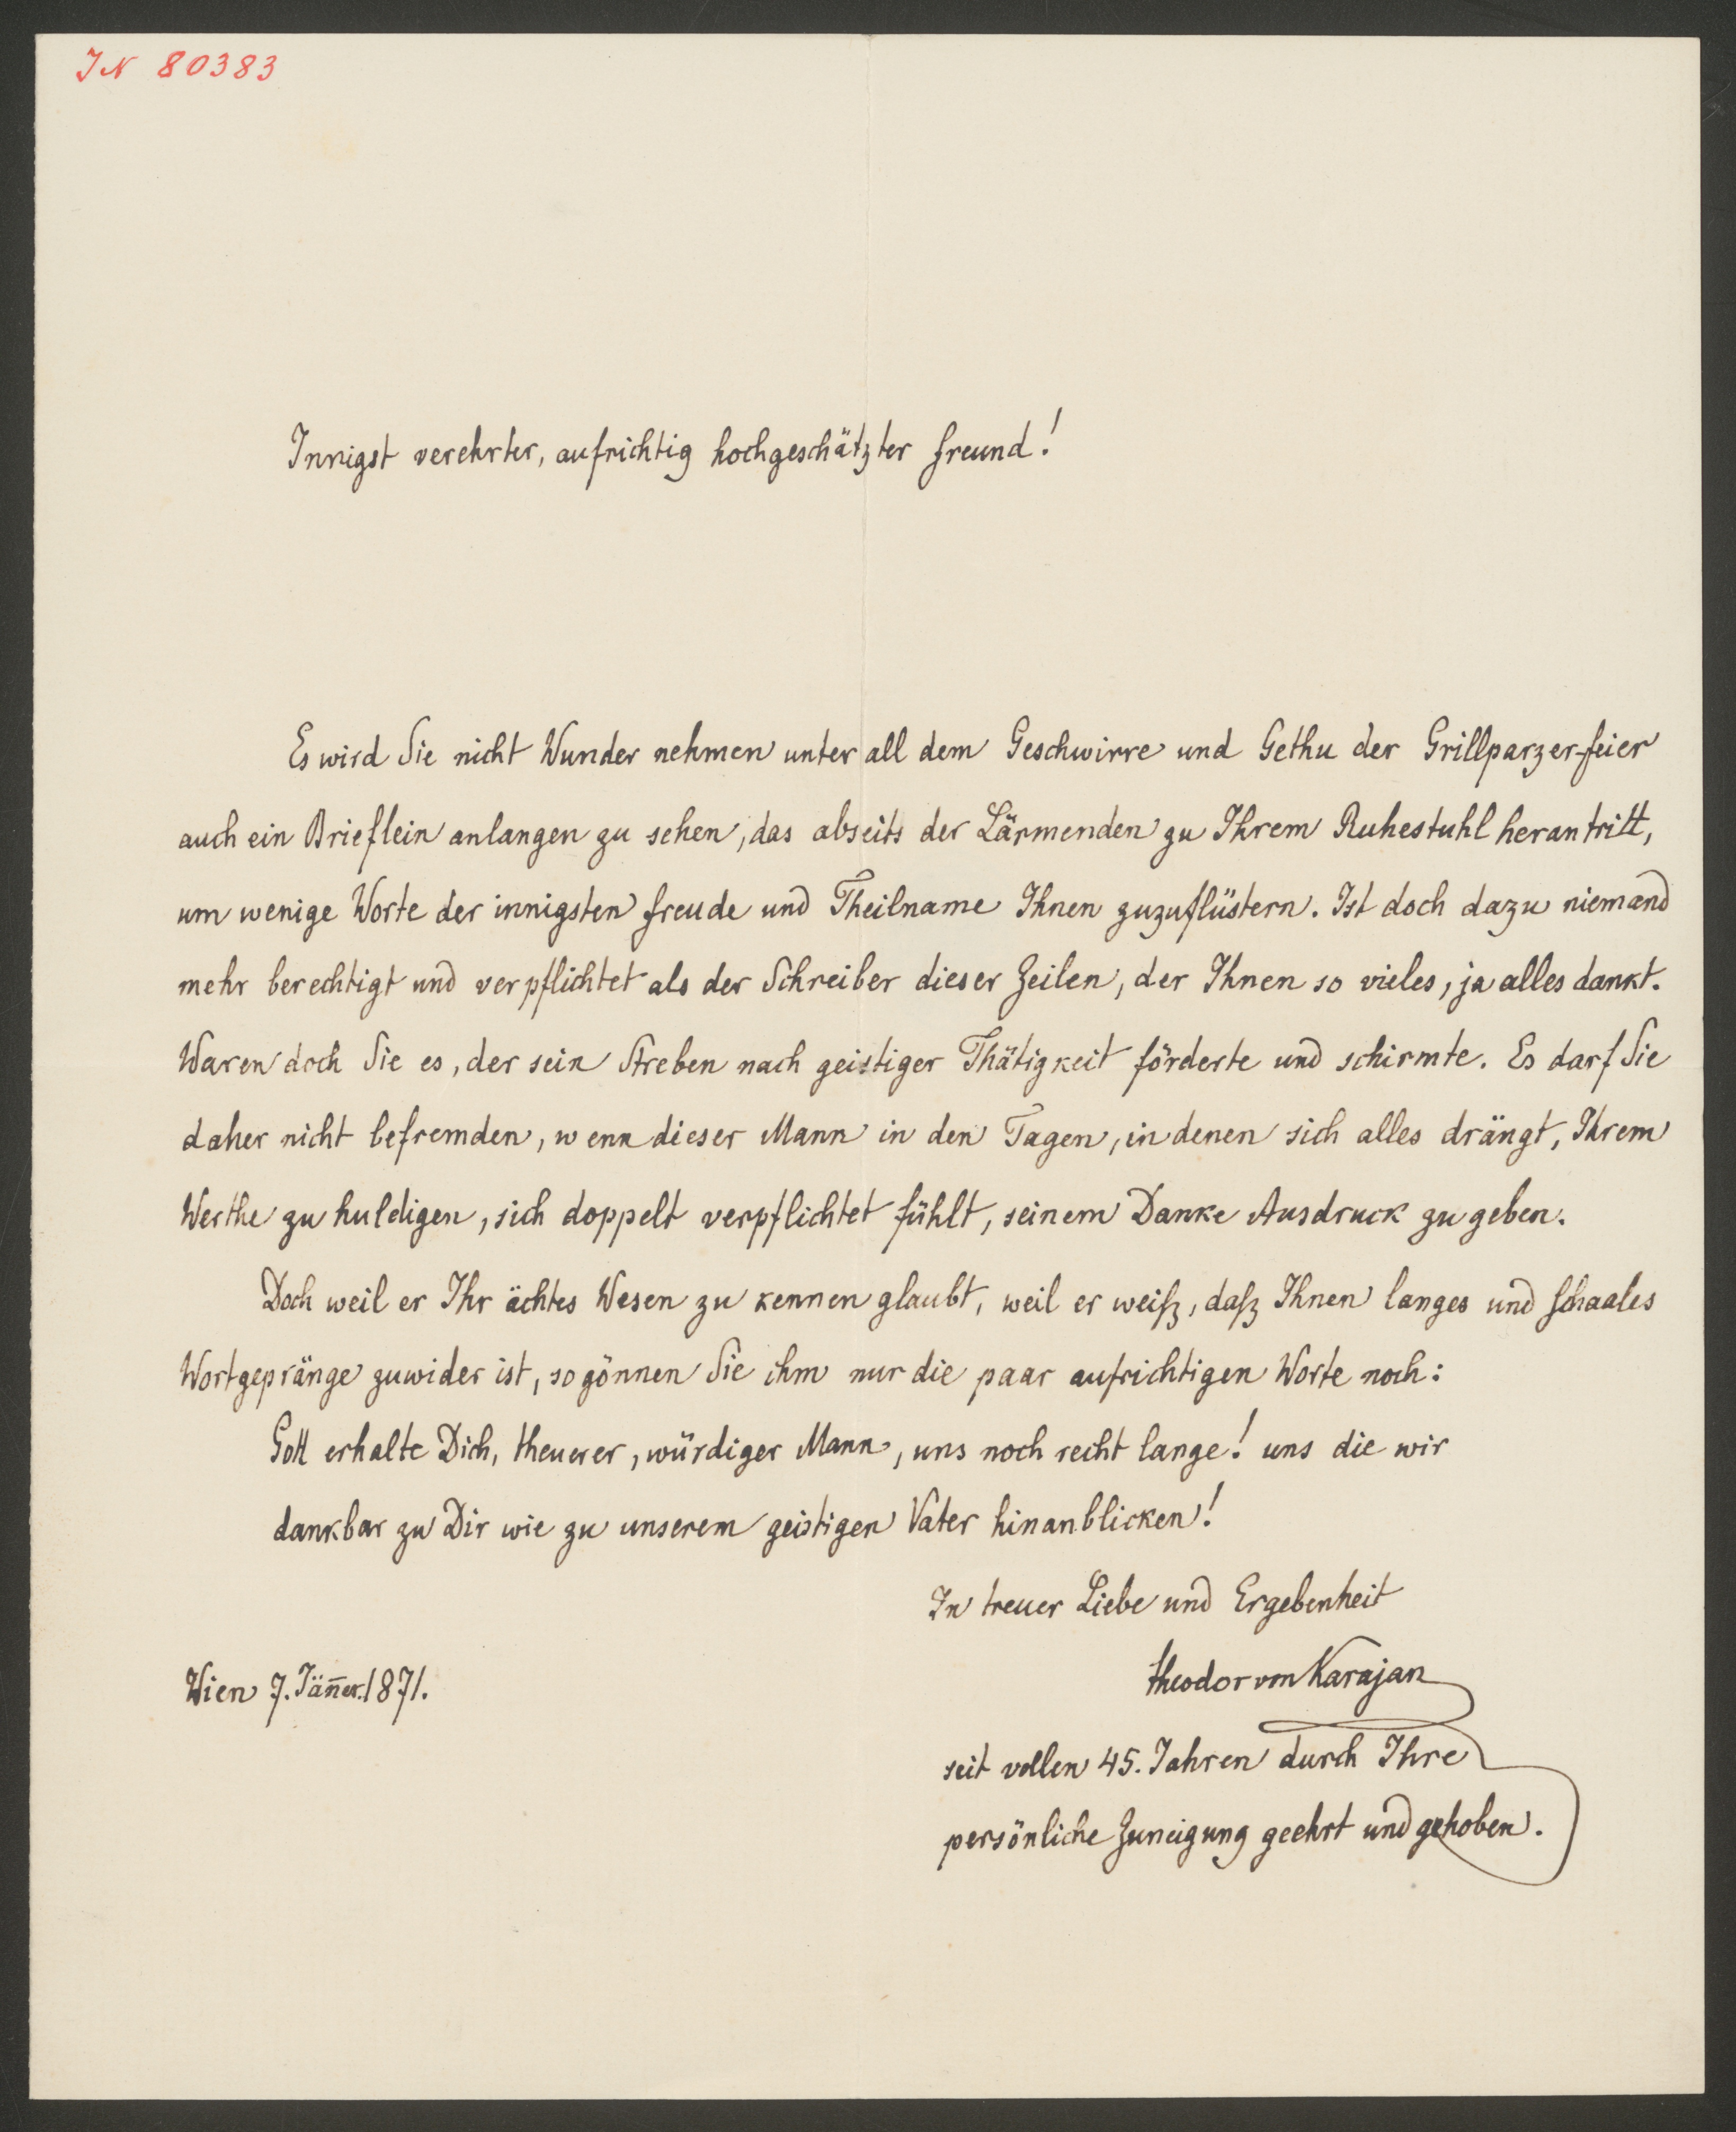 IN 80383
Innigst verehrter, aufrichtig hochgeschätzter Freund!
Es wird Sie nicht Wunder nehmen unter all dem Geschwirre und Gethu der Grillparzer-feier
auch ein Brieflein anlangen zu sehen, das abseits der Lärmenden zu Ihrem Ruhestuhl herantritt,
um wenige Worte der innigsten Freude und Theilname Ihnen zuzuflüstern. Ist doch dazu niemand
mehr berechtigt und verpflichtet als der Schreiber dieser Zeilen, der Ihnen so vieles, ja alles dankt.
Waren doch Sie es, der sein Streben nach geistiger Thätigkeit förderte und schirmte. Es darf Sie
daher nicht befremden, wenn dieser Mann in den Tagen, in denen sich alles drängt, Ihrem
Werthe zu huldigen, sich doppelt verpflichtet fühlt, seinem Danke Ausdruck zu geben.
Doch weil er Ihr ächtes Wesen zu kennen glaubt, weil er weiß, daß Ihnen langes und schaales
Wortgepränge zuwider ist, so gönnen Sie ihm nur die paar aufrichtigen Worte noch:
Gott erhalte Dich, theuerer, würdiger Mann, uns noch recht lange! uns die wir
dankbar zu Dir wie zu unserem geistigen Vater hinanblicken!
In treuer Liebe und Ergebenheit
Theodor von Karajan
Wien 7. Jän̄er. 1871.
seit vollen 45. Jahren durch Ihre
persönliche Zuneigung geehrt und gehoben.